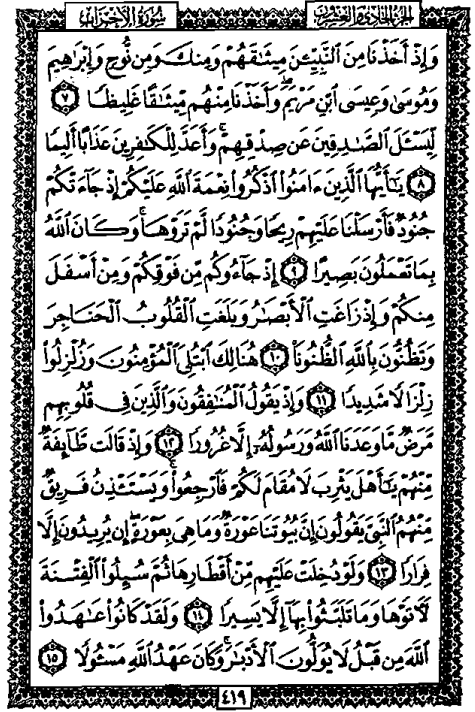 الجزء الحادي والعشرون
سُورَةُ الأَحْزَاب
وَإِذْ أَخَذْنَا مِنَ ٱلنَّبِيِّـۧنَ مِيثَٰقَهُمْ وَمِنكَ وَمِن نُّوحٍ وَإِبْرَٰهِيمَ
وَمُوسَىٰ وَعِيسَى ٱبْنِ مَرْيَمَ ۖ وَأَخَذْنَا مِنْهُم مِّيثَٰقًا غَلِيظًا ٧
لِّيَسْـَٔلَ ٱلصَّٰدِقِينَ عَن صِدْقِهِمْ ۚ وَأَعَدَّ لِلْكَٰفِرِينَ عَذَابًا أَلِيمًا
٨ يَٰٓأَيُّهَا ٱلَّذِينَ ءَامَنُوا۟ ٱذْكُرُوا۟ نِعْمَةَ ٱللَّهِ عَلَيْكُمْ إِذْ جَآءَتْكُمْ
جُنُودٌ فَأَرْسَلْنَا عَلَيْهِمْ رِيحًا وَجُنُودًا لَّمْ تَرَوْهَا ۚ وَكَانَ ٱللَّهُ
بِمَا تَعْمَلُونَ بَصِيرًا ٩ إِذْ جَآءُوكُم مِّن فَوْقِكُمْ وَمِنْ أَسْفَلَ
مِنكُمْ وَإِذْ زَاغَتِ ٱلْأَبْصَٰرُ وَبَلَغَتِ ٱلْقُلُوبُ ٱلْحَنَاجِرَ
وَتَظُنُّونَ بِٱللَّهِ ٱلظُّنُونَا۠ ١٠ هُنَالِكَ ٱبْتُلِىَ ٱلْمُؤْمِنُونَ وَزُلْزِلُوا۟
زِلْزَالًا شَدِيدًا ١١ وَإِذْ يَقُولُ ٱلْمُنَٰفِقُونَ وَٱلَّذِينَ فِى قُلُوبِهِم
مَّرَضٌ مَّا وَعَدَنَا ٱللَّهُ وَرَسُولُهُۥٓ إِلَّا غُرُورًا ١٢ وَإِذْ قَالَت طَّآئِفَةٌ
مِّنْهُمْ يَٰٓأَهْلَ يَثْرِبَ لَا مُقَامَ لَكُمْ فَٱرْجِعُوا۟ ۚ وَيَسْتَـْٔذِنُ فَرِيقٌ
مِّنْهُمُ ٱلنَّبِىَّ يَقُولُونَ إِنَّ بُيُوتَنَا عَوْرَةٌ وَمَا هِىَ بِعَوْرَةٍ ۖ إِن يُرِيدُونَ إِلَّا
فِرَارًا ١٣ وَلَوْ دُخِلَتْ عَلَيْهِم مِّنْ أَقْطَارِهَا ثُمَّ سُئِلُوا۟ ٱلْفِتْنَةَ
لَءَاتَوْهَا وَمَا تَلَبَّثُوا۟ بِهَآ إِلَّا يَسِيرًا ١٤ وَلَقَدْ كَانُوا۟ عَٰهَدُوا۟
ٱللَّهَ مِن قَبْلُ لَا يُوَلُّونَ ٱلْأَدْبَٰرَ ۚ وَكَانَ عَهْدُ ٱللَّهِ مَسْـُٔولًا ١٥
٤١٩